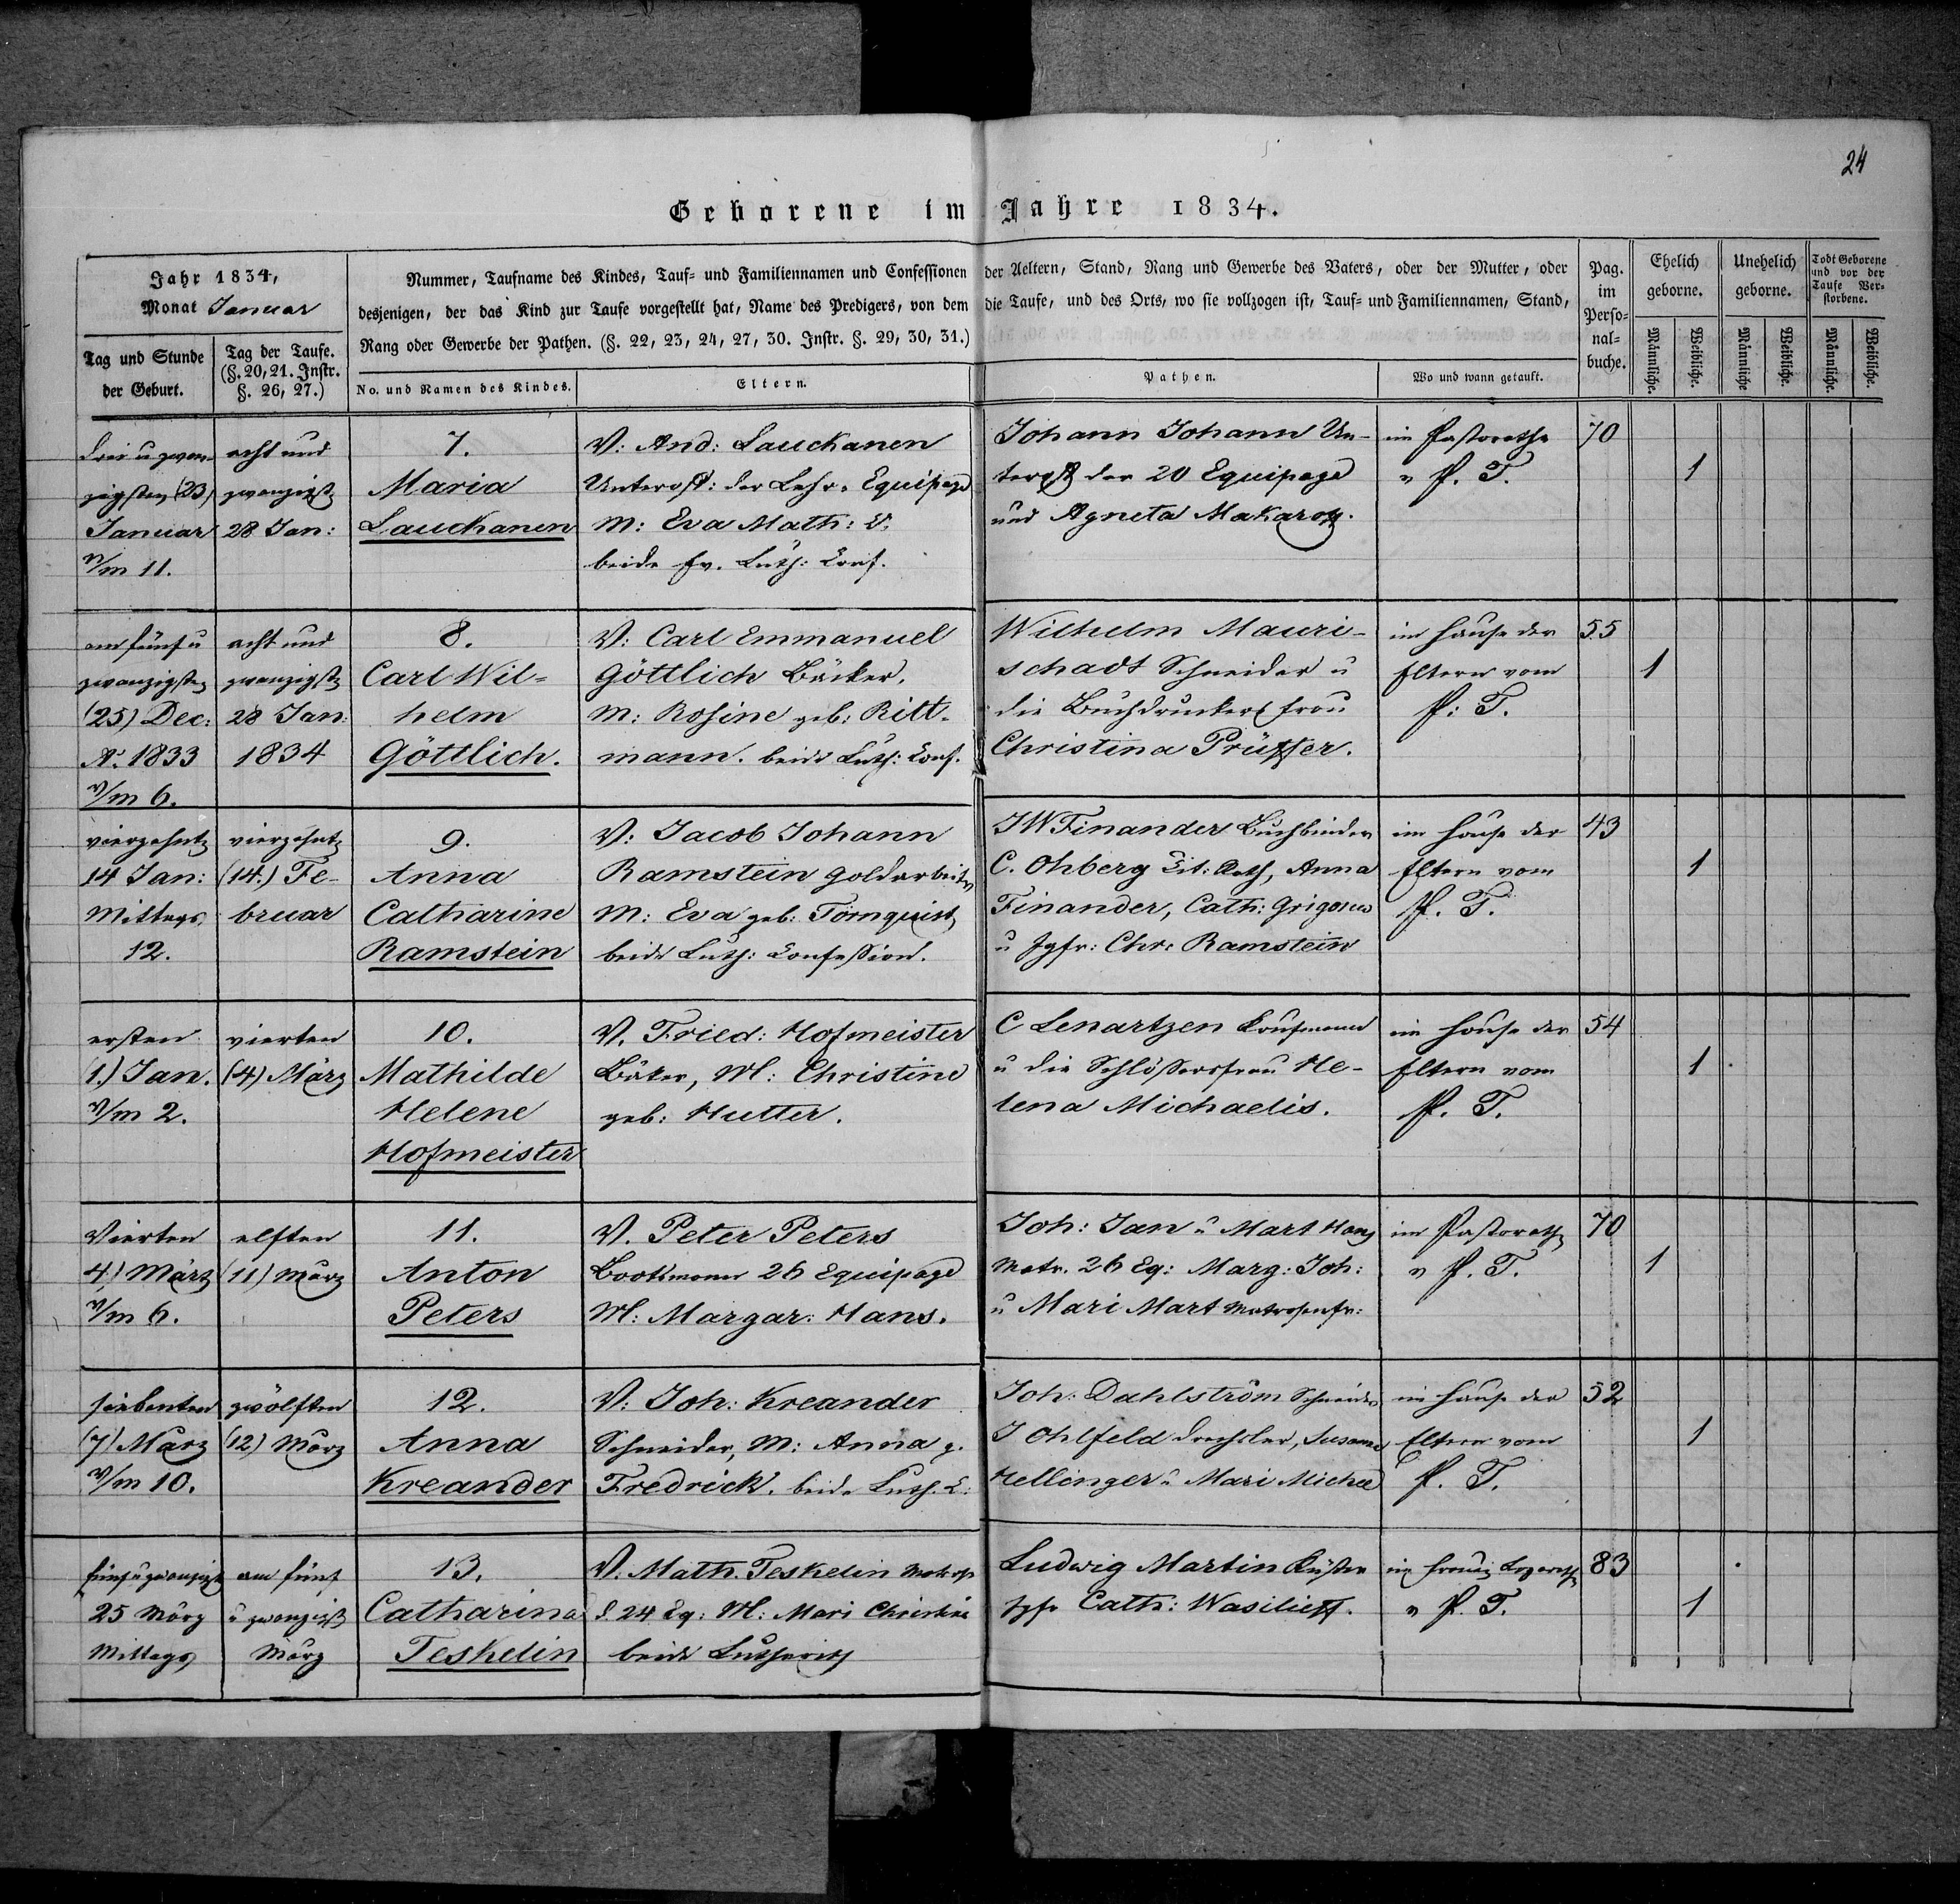 24
Geborene im Jahre 1834.
Jahr 1834,
Monat Januar
Tag und Stunde
der Geburt.
Tag der Taufe.
(§. 20, 21. Instr.
§. 26, 27.)
Nummer, Taufname des Kindes, Tauf- und Familiennamen und Confessionen der Aeltern, Stand, Rang und Gewerbe des Vaters, oder der Mutter, oder
desjenigen, der das Kind zur Taufe vorgestellt hat, Name des Predigers, von dem die Taufe, und des Orts, wo sie vollzogen ist, Tauf- und Familiennamen, Stand,
Rang oder Gewerbe der Pathen. (§. 22, 23, 24, 27, 30. Instr. §. 29, 30, 31.)
No. und Namen des Kindes.
Eltern.
Pathen.
Wo und wann getauft.
Pag.
im
Perso-
nal-
buche.
Ehelich
geborne.
Unehelich
geborne.
Todt Geborene
und vor der
Taufe Ver-
storbene.
Männliche.
Weibliche.
Männliche
Weibliche.
Männliche.
Weibliche.
drei u zwan-
zigsten (23)
Januar
V/m 11.
acht und
zwanzigst
28 Jan:
7.
Maria
Lauckanen
V: And: Lauckanen
Unteroff: der Lehr-Equipage
M: Eva Math: V.
beide Ev. Luth: Conf.
Johann Johann Un-
teroff der 20 Equipage
und Agneta Makaroff.
im Pastorathe
v P. T.
70
1
am fünf u
zwanzigsten
(25) Dec:
Ao. 1833
V/m 6.
acht und
zwanzigst
28 Jan:
1834
8.
Carl Wil-
helm
Göttlich.
V: Carl Emmanuel
Göttlich Bäcker.
M: Rosine geb: Ritt-
mann. beide Luth: Conf.
Wilhelm Mauri-
schadt Schneider u
die Buchdruckers frau
Christina Prüffer.
im Hause der
Eltern vom
P: T.
55
1
vierzehnte
14 Jan:
Mittags
12.
vierzehnte
(14.) Fe-
bruar
9.
Anna
Catharine
Ramstein
V: Jacob Johann
Ramstein Goldarbeiter
M: Eva geb: Törnquist
beide Luth: Confession.
J W Finander Buchbinder
C. Ohberg Tit: Rath, Anna
Finander, Cath:
u Jgfr: Chr: Ramstein
im Hause der
Eltern vom
P. T.
43
1
ersten
(1.) Jan.
V/m 2.
vierten
(4) März
10.
Mathilde
Helene
Hofmeister
V. Fried: Hofmeister
Bäker, M: Christine
geb: Hutter.
C Lenartzen Kaufmann
u die Schlössersfrau He-
lena Michaelis.
im Hause der
Eltern vom
P. T.
54
1
Vierten
4) März
V/m 6.
elften
(11) März
11.
Anton
Peters
V. Peter Peters
Bootsmann 26 Equipage
M: Margar: Hans.
Joh: Jan u Mart Hans
Matr. 26 Eq: Marg: Joh:
u Mari Mart Matrosenfr:
im Pastorath
v P. T.
70
1
siebenten
(7) März
V/m 10.
zwölften
(12) März
12.
Anna
Kreander
V: Joh: Kreander
Schneider, M: Anna g.
Fredrick. beide Luth. C.
Joh: Dahlström Schneider
J Ohlfeld Drechsler, Susanna
Hellinger u Mari Michel
im Hause der
Eltern vom
P. T.
52
1
fünfuzwanzigst
25 März
Mittags
am fünf
u zwanzigst
März
13.
Catharina
Teskelin
V. Math. Teskelin Matrose
d. 24 Eq: M: Mari Christine
beide Lutherisch
Ludwig Martin Küster
Jgfr Cath: Wasilieff.
im
v P. T.
83
1